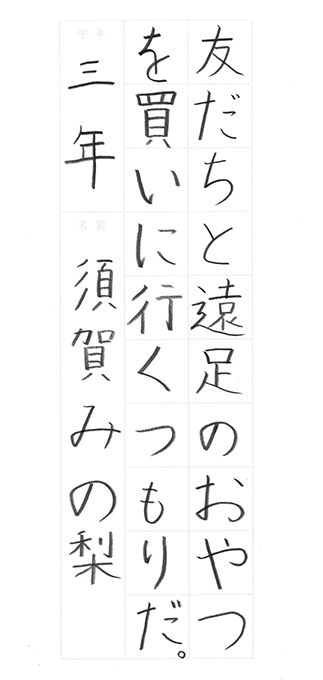 友だちと遠足のおやつ
を買いに行くつもりだ。
学年
三年
名前
須賀みの梨